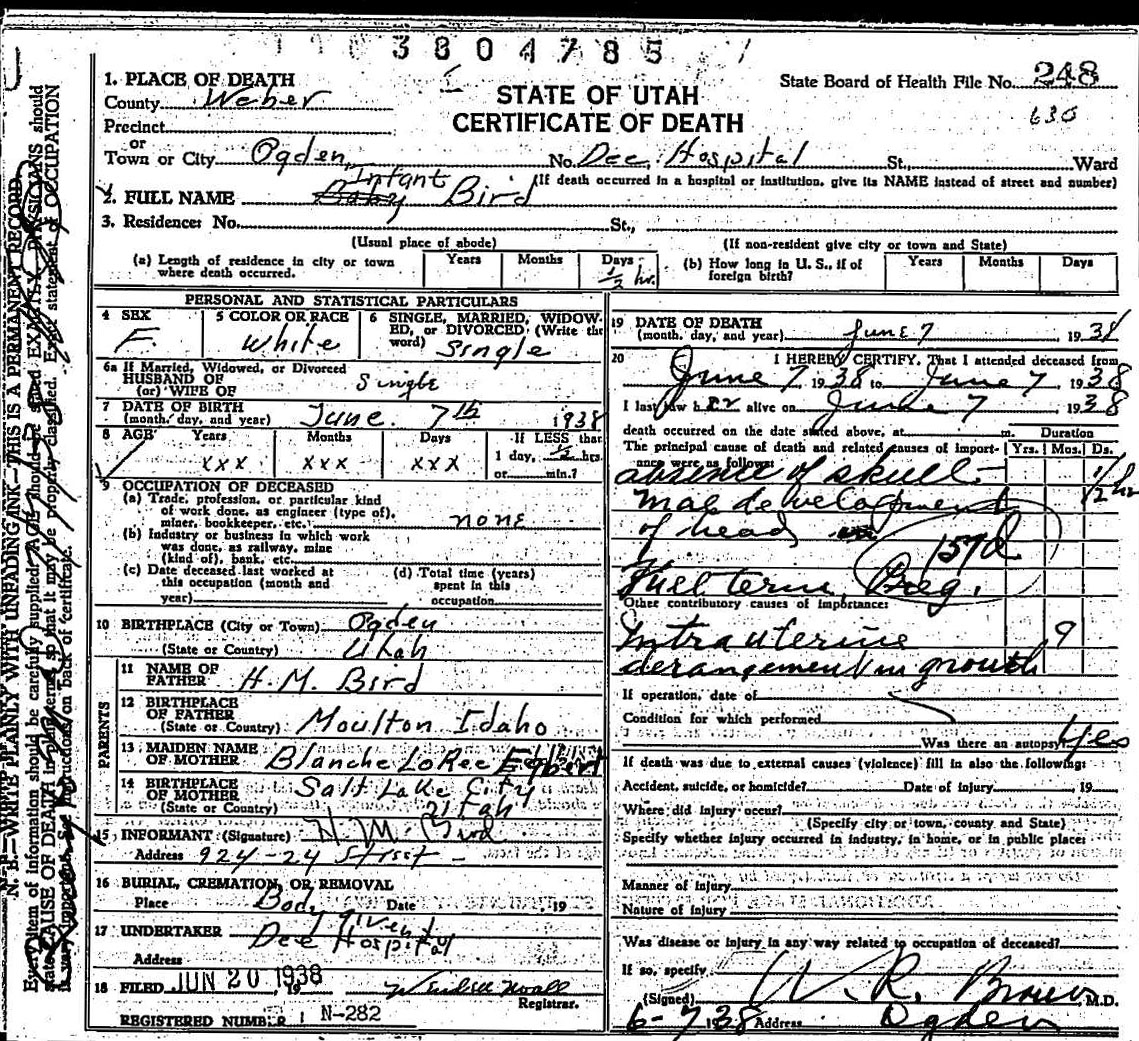 3804785
State Board of Health File No. 248
635
STATE OF UTAH
CERTIFICATE OF DEATH
1. PLACE OF DEATH
County Weber
Precinct
or
Town or City Ogden, No. Dee Hospital St. Ward
(If death occurred in a hospital or institution, give its NAME instead of street and number)
Infant
2. FULL NAME Baby Bird
3. Residence: No. St.,
(Usual place of abode) (If non-resident give city or town and State)
(a) Length of residence in city or town where death occurred. Years Months Days ½ hr.
(b) How long in U. S., if of foreign birth? Years Months Days
PERSONAL AND STATISTICAL PARTICULARS
4 SEX F.
5 COLOR OR RACE White
6 SINGLE, MARRIED, WIDOWED, or DIVORCED: (Write the word) Single
6a If Married, Widowed, or Divorced
HUSBAND OF
(or) WIFE OF Single
7 DATE OF BIRTH
(month, day, and year) June 7th 1938
8 AGE Years Months Days If LESS than
xxx xxx xxx 1 day, ½ hrs.
or min.?
9 OCCUPATION OF DECEASED
(a) Trade, profession, or particular kind
of work done, as engineer (type of),
miner, bookkeeper, etc. none
(b) Industry or business in which work
was done, as railway, mine
(kind of), bank, etc.
(c) Date deceased last worked at
this occupation (month and
year)
(d) Total time (years)
spent in this
occupation
10 BIRTHPLACE (City or Town) Ogden
(State or Country) Utah
PARENTS
11 NAME OF
FATHER H. M. Bird
12 BIRTHPLACE
OF FATHER
(State or Country) Moulton Idaho
13 MAIDEN NAME
OF MOTHER Blanche LoRee Egbert
14 BIRTHPLACE
OF MOTHER Salt Lake City
(State or Country) Utah
15 INFORMANT (Signature) H. M. Bird
Address 924-24 Street
16 BURIAL, CREMATION, OR REMOVAL
Place Body given Date , 19
17 UNDERTAKER Dee Hospital
Address
18 FILED JUN 20 1938
Registrar.
REGISTERED NUMBER N-282
19 DATE OF DEATH
(month, day, and year) June 7 1938
20 I HEREBY CERTIFY, That I attended deceased from
June 7 1938 to June 7 1938
I last saw her alive on June 7 1938
death occurred on the date stated above, at m. Duration
The principal cause of death and related causes of importance were as follows: Yrs. Mos. Ds.
absence of skull - ½ hr
mal development
of head
157d
Full term Preg.
Other contributory causes of importance:
Intrauterine 9
derangement in growth
If operation, date of
Condition for which performed
Was there an autopsy? Yes
If death was due to external causes (violence) fill in also the following:
Accident, suicide, or homicide? Date of injury 19
Where did injury occur?
(Specify city or town, county and State)
Specify whether injury occurred in industry, in home, or in public place:
Manner of injury
Nature of injury
Was disease or injury in any way related to occupation of deceased?
If so, specify
(Signed) W. R. Brown M.D.
6-7 1938 Address Ogden
N. B.—WRITE PLAINLY WITH UNFADING INK—THIS IS A PERMANENT RECORD
Every item of information should be carefully supplied. AGE should be stated EXACTLY. PHYSICIANS should
state CAUSE OF DEATH in plain terms, so that it may be properly classified. Exact statement of OCCUPATION
is very important. See instructions on back of certificate.